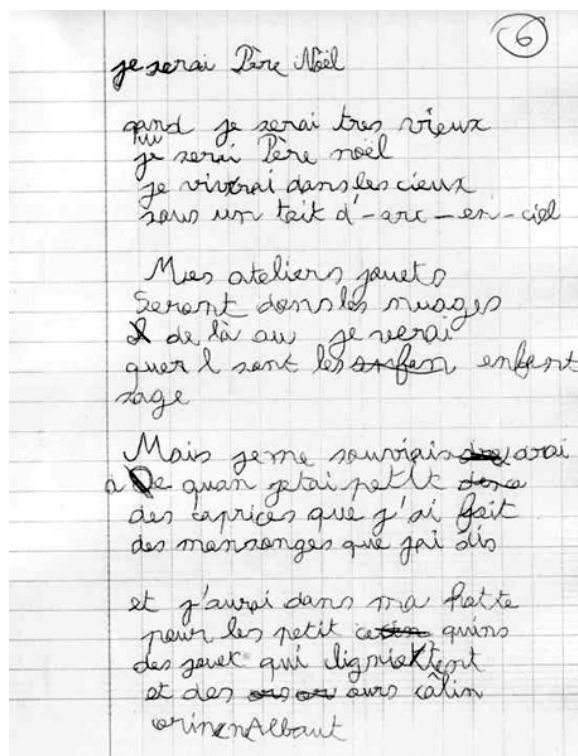 6
je serai Père Noël
qand je serai tres vieux
je serai Père noël
je vivrai dans les cieux
sous un toit d'-arc-en-ciel
Mes ateliers jouets
Seront dans les nuages
de là au je verai
quer l sont les enfant
sage
Mais je me souviais drai
à De quan jetai petit
des caprices que j'ai fait
des mansonges que jai dis
et j'aurai dans ma hotte
pour les petit quins
des jouet qui
et des ours câlin